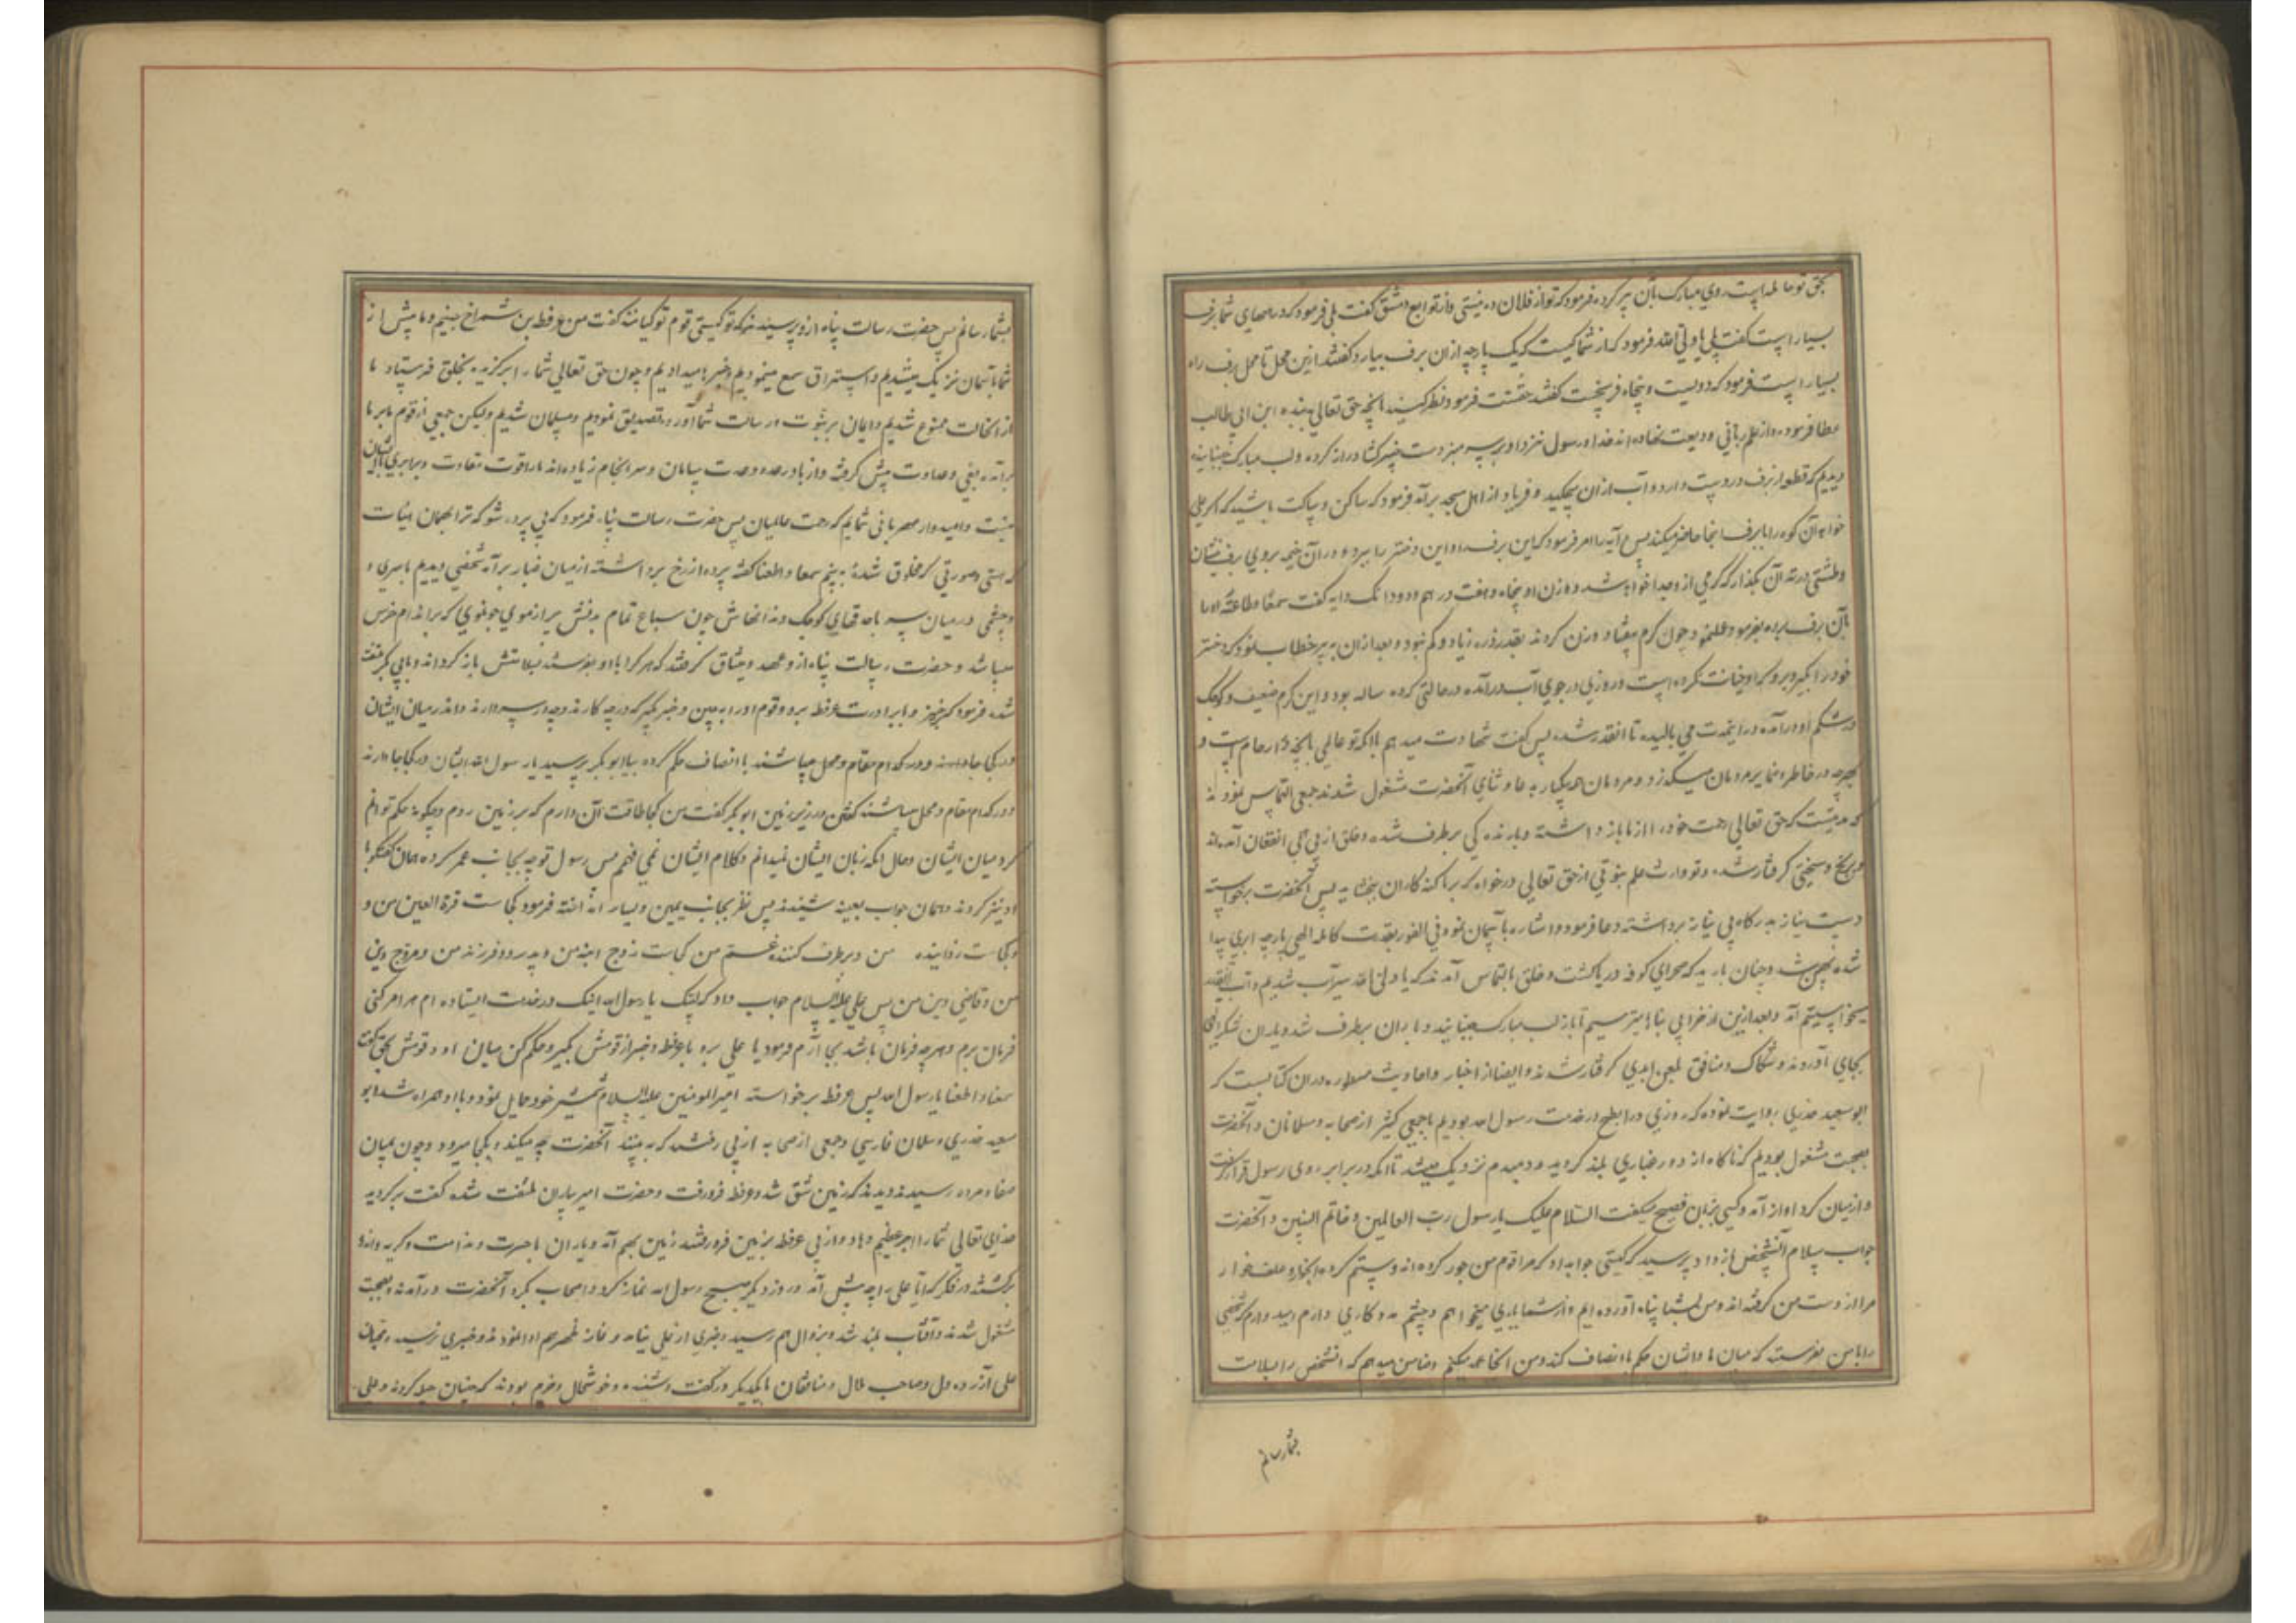 بحق توما لمه است روی مبارک بآن پیر کرده فرمود که تو از فلان ده نیستی و از توابع دمشق گفت بلی فرمود که در راههای شما برف
بسیار است گفت بلی یا ولی الله فرمود که از شما کیست که یک پارچه ازان برف بیارد گفتند ازین محل تا محل برف راه
بسیار است فرمود که دویست و پنجاه فرسخست گفتند حقست فرمود نظر کنید بانچه حق تعالی ببنده ابن ابی طالب
عطا فرموده و از علم ربانی ودیعت نهاده اند خدا و رسول نزد او بر سر منبر دست خیبر گشا دراز کرده و لب مبارک جنبانیده
دیدیم که قطعه از برف در دست دارد و آب ازان میچکید و فریاد از اهل مسجد برآمد فرمود که ساکن و ساکت باشید که اگر علی
خواهد آن کوه را با برف اینجا حاضر میکند پس دایه را امر فرمود که این برف را و این دختر را ببرد و دران خیمه بروی برف بنشان
و طشتی در ته آن بگذار که کرمی از وجدا خواهد شد و وزن او پنجاه و هفت درهم و دو دانک دایه گفت سمعا و طاعة او را
بآن برف برده بفرموده عملنمود چون کرم بیفتاد و وزن کردند بقدر ذره زیاد و کم نبود و بعد ازان به پیر خطاب نمود که دختر
خود را بگیر و ببر و که او خیانت نکرده است و روزی در جوی آب درآمده در حالتی که ده ساله بود و این کرم ضعیف و کوچک
در شکم او درآمده در اینمدت می بالیده تا انقدر شده پس گفت شهادت میدهم با انکه تو عالمی بانچه در ارحام است و
بهرچه در خاطر و ضمایر مردمان میگذرد و مردمان همه یکبار به دعا و ثنای آنحضرت مشغول شدند جمعی التماس نمودند
که مدتیست که حق تعالی رحمت خود را از ما باز داشته و بارندگی برطرف شده و خلق از بی آبی بافغان آمده اند
و برنج و سختی گرفتار شده و تو وارث علم نبوتی از حق تعالی درخواه که بر ما گنه کاران ببخشاید پس آنحضرت برخواسته
دست نیاز بدرگاه بی نیاز برداشته دعا فرمود و اشاره بآسمان نمود فی الفور بقدرت کامله الهی پارچه ابری پیدا
شده پهن شد و چنان بارید که صحرای کوفه دریا گشت و خلق بالتماس آمدند که یا ولی الله سیرآب شدیم و آب انقدر
میخواستیم آمد و بعد ازین از خرابی بناها میترسیم آنا باز لب مبارک جنبانیده و باران برطرف شد و یاران شکر الهی
بجای آوردند و شکاک و منافق بلعن ابدی گرفتار شدند و ایضا از اخبار و احادیث مسطوره دران کتابست که
ابو سعید خدری روایت نموده که روزی در ابطح در خدمت رسول الله بودیم با جمعی کثیر از صحابه و مسلمانان و آنحضرت
بصحبت مشغول بودیم که ناگاه از دور غباری بلند گردید و دمبدم نزدیک میشد تا انکه در برابر روی رسول قرار گرفت
و از میان گرد آواز آمد و کسی بزبان فصیح میگفت السلام علیک یا رسول رب العالمین و خاتم النبیین و آنحضرت
جواب سلام آنشخص باز داد پرسید که کیستی جواب داد که مرا قوم من جور کرده اند و ستم کرده
مرا از دست من گرفته اند و من بشما پناه آورده ایم و از شما یاری میخواهم و چشم مددکاری دارم و امید دارم که شخصی
را با من بفرست که میان ما و ایشان حکم باانصاف کند و من انجا عهد میکنم و ضامن میدهم که آنشخص را بسلامت
بشما رسانم
بشما رسانم پس حضرت رسالت پناه ازو پرسید که تو کیستی و قوم تو کیانند گفت من عرفطه بن شمراخ جنیم و ما پیش از
شما بآسمان نزدیک میشدیم و استراق سمع مینمودیم و خبرها میدادیم و چون حق تعالی شما را برگزیده بخلق فرستاد ما
از انحالت ممنوع شدیم و ایمان بر نبوت و رسالت شما آورده تصدیق نمودیم و مسلمان شدیم و لیکن جمعی از قوم ما بر ما
برآمده بغی و عداوت پیش گرفته و از ما در عدد و عدت سامان و سرانجام زیاده اند ما را قوت مقاومت و برابری با ایشان
نیست و امیدوار مهربانی شمایم که رحمت عالمیان پس حضرت رسالت پناه فرمود که بی پرده شو که ترا بهمان هیئات
که هستی و صورتی که مخلوق شدهٔ ببینیم سمعا و اطعنا گفته پرده از رخ برداشته از میان غبار برآمد شخصی دیدیم با سری و
و چشمی در میان سر با حدقهای کوچک و دندانهاش چون سباع تمام بدنش پر از موی چو موی که بر اندام خرس
میباشد و حضرت رسالت پناه ازو عهد و میثاق گرفتند که هر کرا با او بفرستد بسلامتش باز گرداند و بابی بکر ملتفت
شده فرمود که برخیز و با برادرت عرفطه برو و قوم او را ببین و خبر بگیر که در چه کارند و چه در سر دارند و اندر میان ایشان
در کجا جا دارند و در کدام مقام و محل میباشند باانصاف حکم کرده بیا ابوبکر پرسید یا رسول الله ایشان در کجا جا دارند
و در کدام مقام و محل میباشند گفتن در زیر زمین ابوبکر گفت من کجا طاقت آن دارم که بزیر زمین روم و چگونه حکم توانم
کرد میان ایشان و حال انکه زبان ایشان نمیدانم و کلام ایشان نمی فهمم پس رسول توجه بجانب عمر کرده همان گفتگو با
او نیز کردند و همان جواب بعینه شنیدند پس نظر بجانب یمین و یسار انداخته فرمود کجاست قرة العین من و
و کجاست زداینده من و برطرف کننده غم من کجاست زوج ابنه من و پدر دو فرزند من و مروج دین
من و قاضی دین من پس علی علیه السلام جواب داد که لبیک یا رسول الله اینک در خدمت ایستاده ام هر امر کنی
فرمان برم و هر چه فرمان باشد بجا آرم فرمود یا علی برو با عرفطه و خبر از قومش بگیر و حکم کن میان او و قومش بحق گفت
سمعنا و اطعنا یا رسول الله پس عرفطه برخواسته امیر المومنین علیه السلام شمشیر خود حمایل نمود و با او همراه شد ابو
سعید خدری و سلمان فارسی و جمعی از صحابه از پی رفتند که به بینند آنحضرت چه میکند و بکجا میرود و چون بمیان
صفا و مروه رسیدند دیدند که زمین شق شد و عرفطه فرورفت و حضرت امیر بیاران ملتفت شده گفت برگردید
خدای تعالی شما را اجر عظیم دهاد و از پی عرفطه بزمین فرورفتند زمین بهم آمد و یاران با حسرت و ندامت و گریه و اندوه
برگشتند در فکر که آیا علی را چه پیش آمد و روز دیگر صبح رسول الله نماز کرد و اصحاب بگرد آنحضرت درآمدند بصحبت
مشغول شدند و آفتاب بلند شد و بزوال هم رسید و خبری از علی نیامد و نماز ظهر هم ادا نمودند و خبری نرسید و محبان
علی آزرده دل و صاحب ملال و منافقان با یکدیگر در گفت و شنید و خوشحال و خرم بودند که جنیان حیله کردند و علی